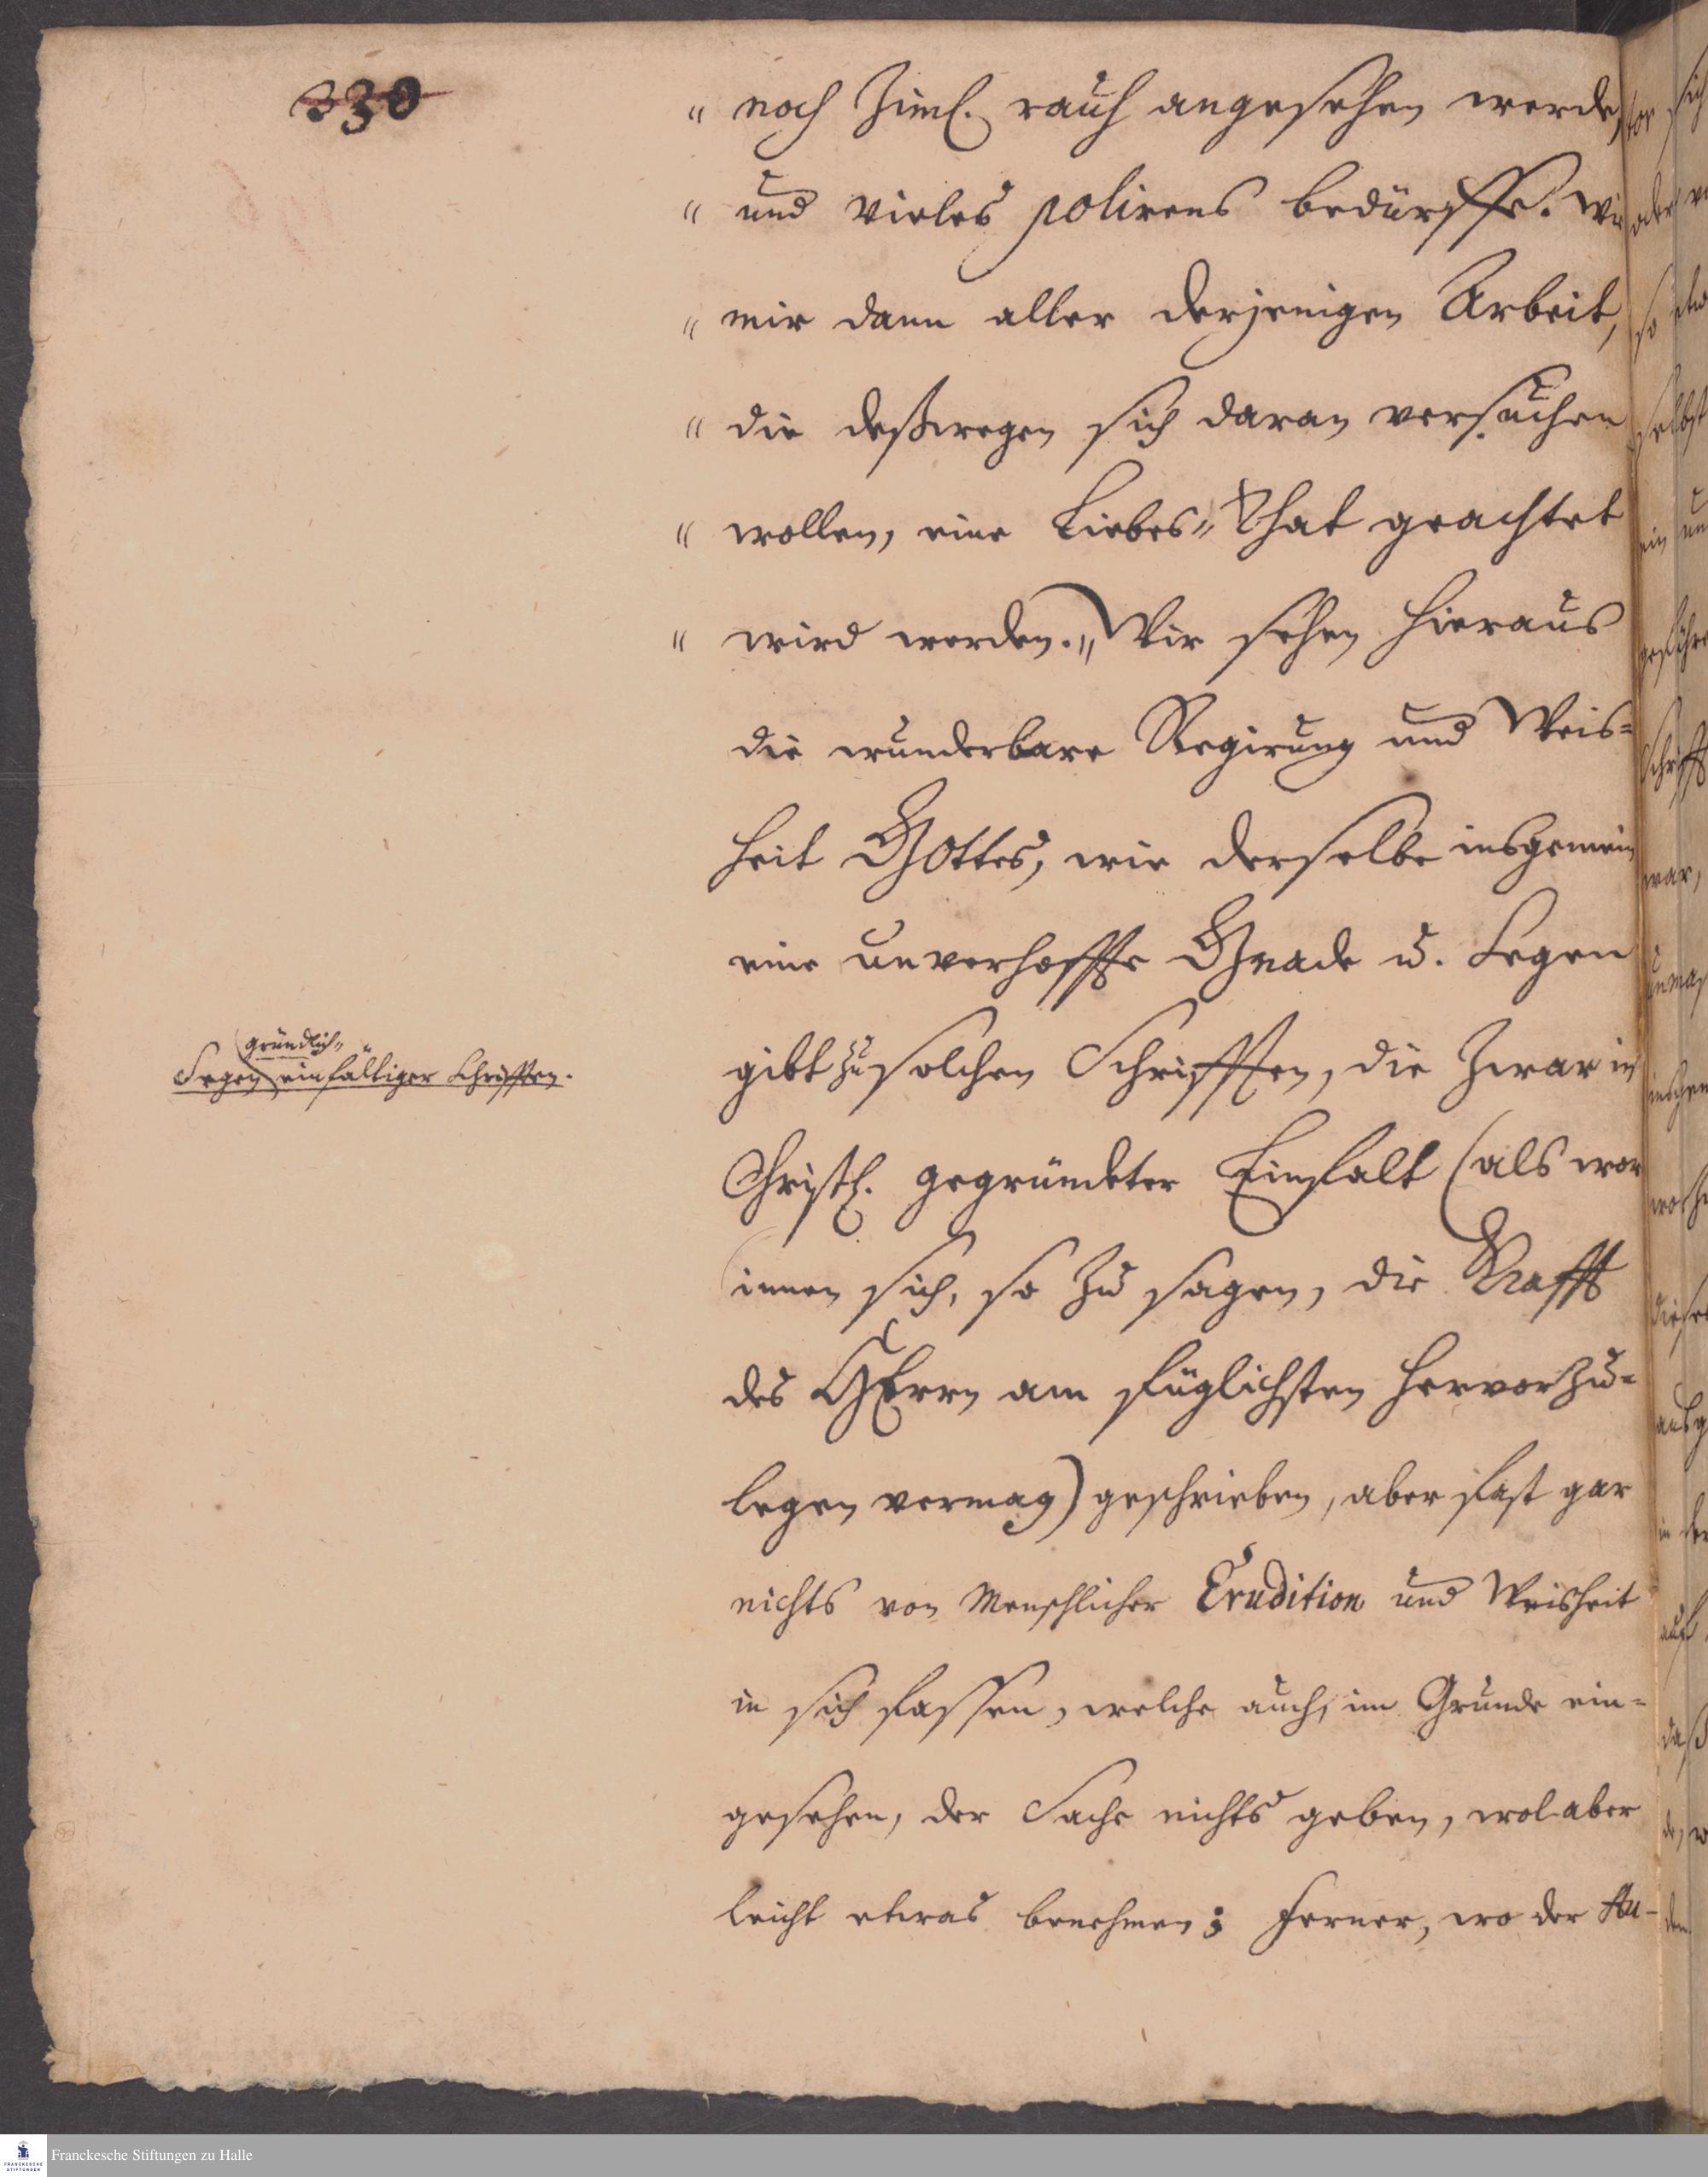 330
„ noch Ziml. rauh angesehen werde,
„ und vieles polirens bedürffe. Wie
„ mir dann aller derjenigen Arbeit,
„ die deßwegen sich daran versuchen
„ wollen, eine Liebes„That geachtet
„ wird werden.„ Wir sehen hieraus
die wunderbare Regirung und Weis=
heit GOttes, wie derselbe insgemein
eine unverhoffte Gnade u. Segen
gibt zu solchen Schrifften, die Zwar in
Christl. gegründeter Einfalt (als wor
innen sich, so Zu sagen, die Krafft
des HErrn am füglichsten hervorZu=
legen vermag) geschrieben, aber fast gar
nichts von Menschlicher Erudition und Weisheit
in sich fassen, welche auch, im Grunde ein=
gesehen, der Sache nichts geben, wol aber
leicht etwas benehmen; ferner, wo der Au-
gründlich„
Segen einfältiger Schrifften.
Franckesche Stiftungen zu Halle